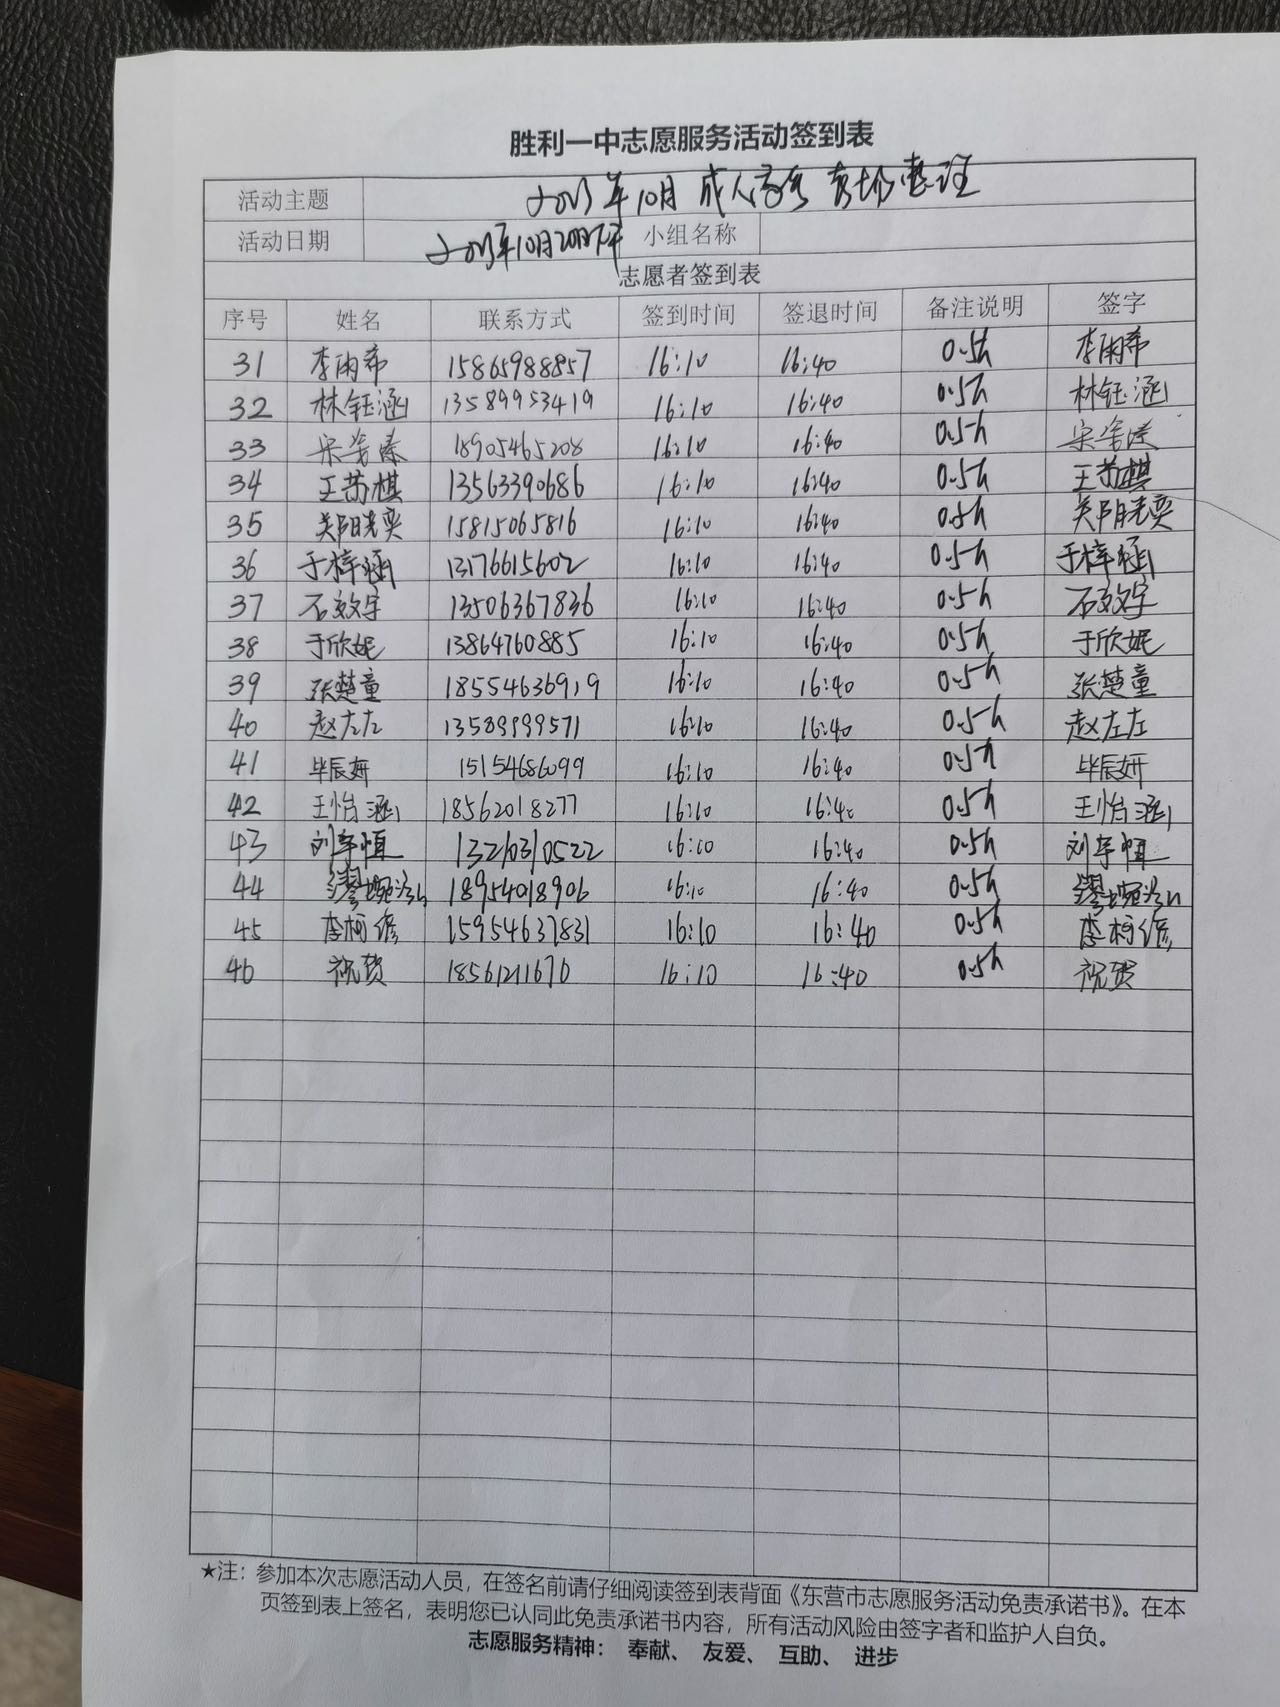 胜利一中志愿服务活动签到表
活动主题 2023年10月成人高考考场整理
活动日期 2023年10月20日下午 小组名称
志愿者签到表
序号 姓名 联系方式 签到时间 签退时间 备注说明 签字
31 李雨希 15865988857 16:10 16:40 0.5h 李雨希
32 林钰涵 13589953419 16:10 16:40 0.5h 林钰涵
33 18905465208 16:10 16:40 0.5h
34 王芮棋 13563390686 16:10 16:40 0.5h 王芮棋
35 15815065816 16:10 16:40 0.5h
36 于梓涵 13176615602 16:10 16:40 0.5h 于梓涵
37 石效宇 13506367836 16:10 16:40 0.5h 石效宇
38 于欣妮 13864760885 16:10 16:40 0.5h 于欣妮
39 张楚童 18554636919 16:10 16:40 0.5h 张楚童
40 赵左左 13589999571 16:10 16:40 0.5h 赵左左
41 毕辰妍 15154686099 16:10 16:40 0.5h 毕辰妍
42 王怡涵 18562018277 16:10 16:40 0.5h 王怡涵
43 刘宇恒 13210310522 16:10 16:40 0.5h 刘宇恒
44 18954018906 16:10 16:40 0.5h
45 李柯修 15954637831 16:10 16:40 0.5h 李柯修
46 祝贺 18561211670 16:10 16:40 0.5h 祝贺
★注：参加本次志愿活动人员，在签名前请仔细阅读签到表背面《东营市志愿服务活动免责承诺书》。在本
页签到表上签名，表明您已认同此免责承诺书内容，所有活动风险由签字者和监护人自负。
志愿服务精神： 奉献、 友爱、 互助、 进步